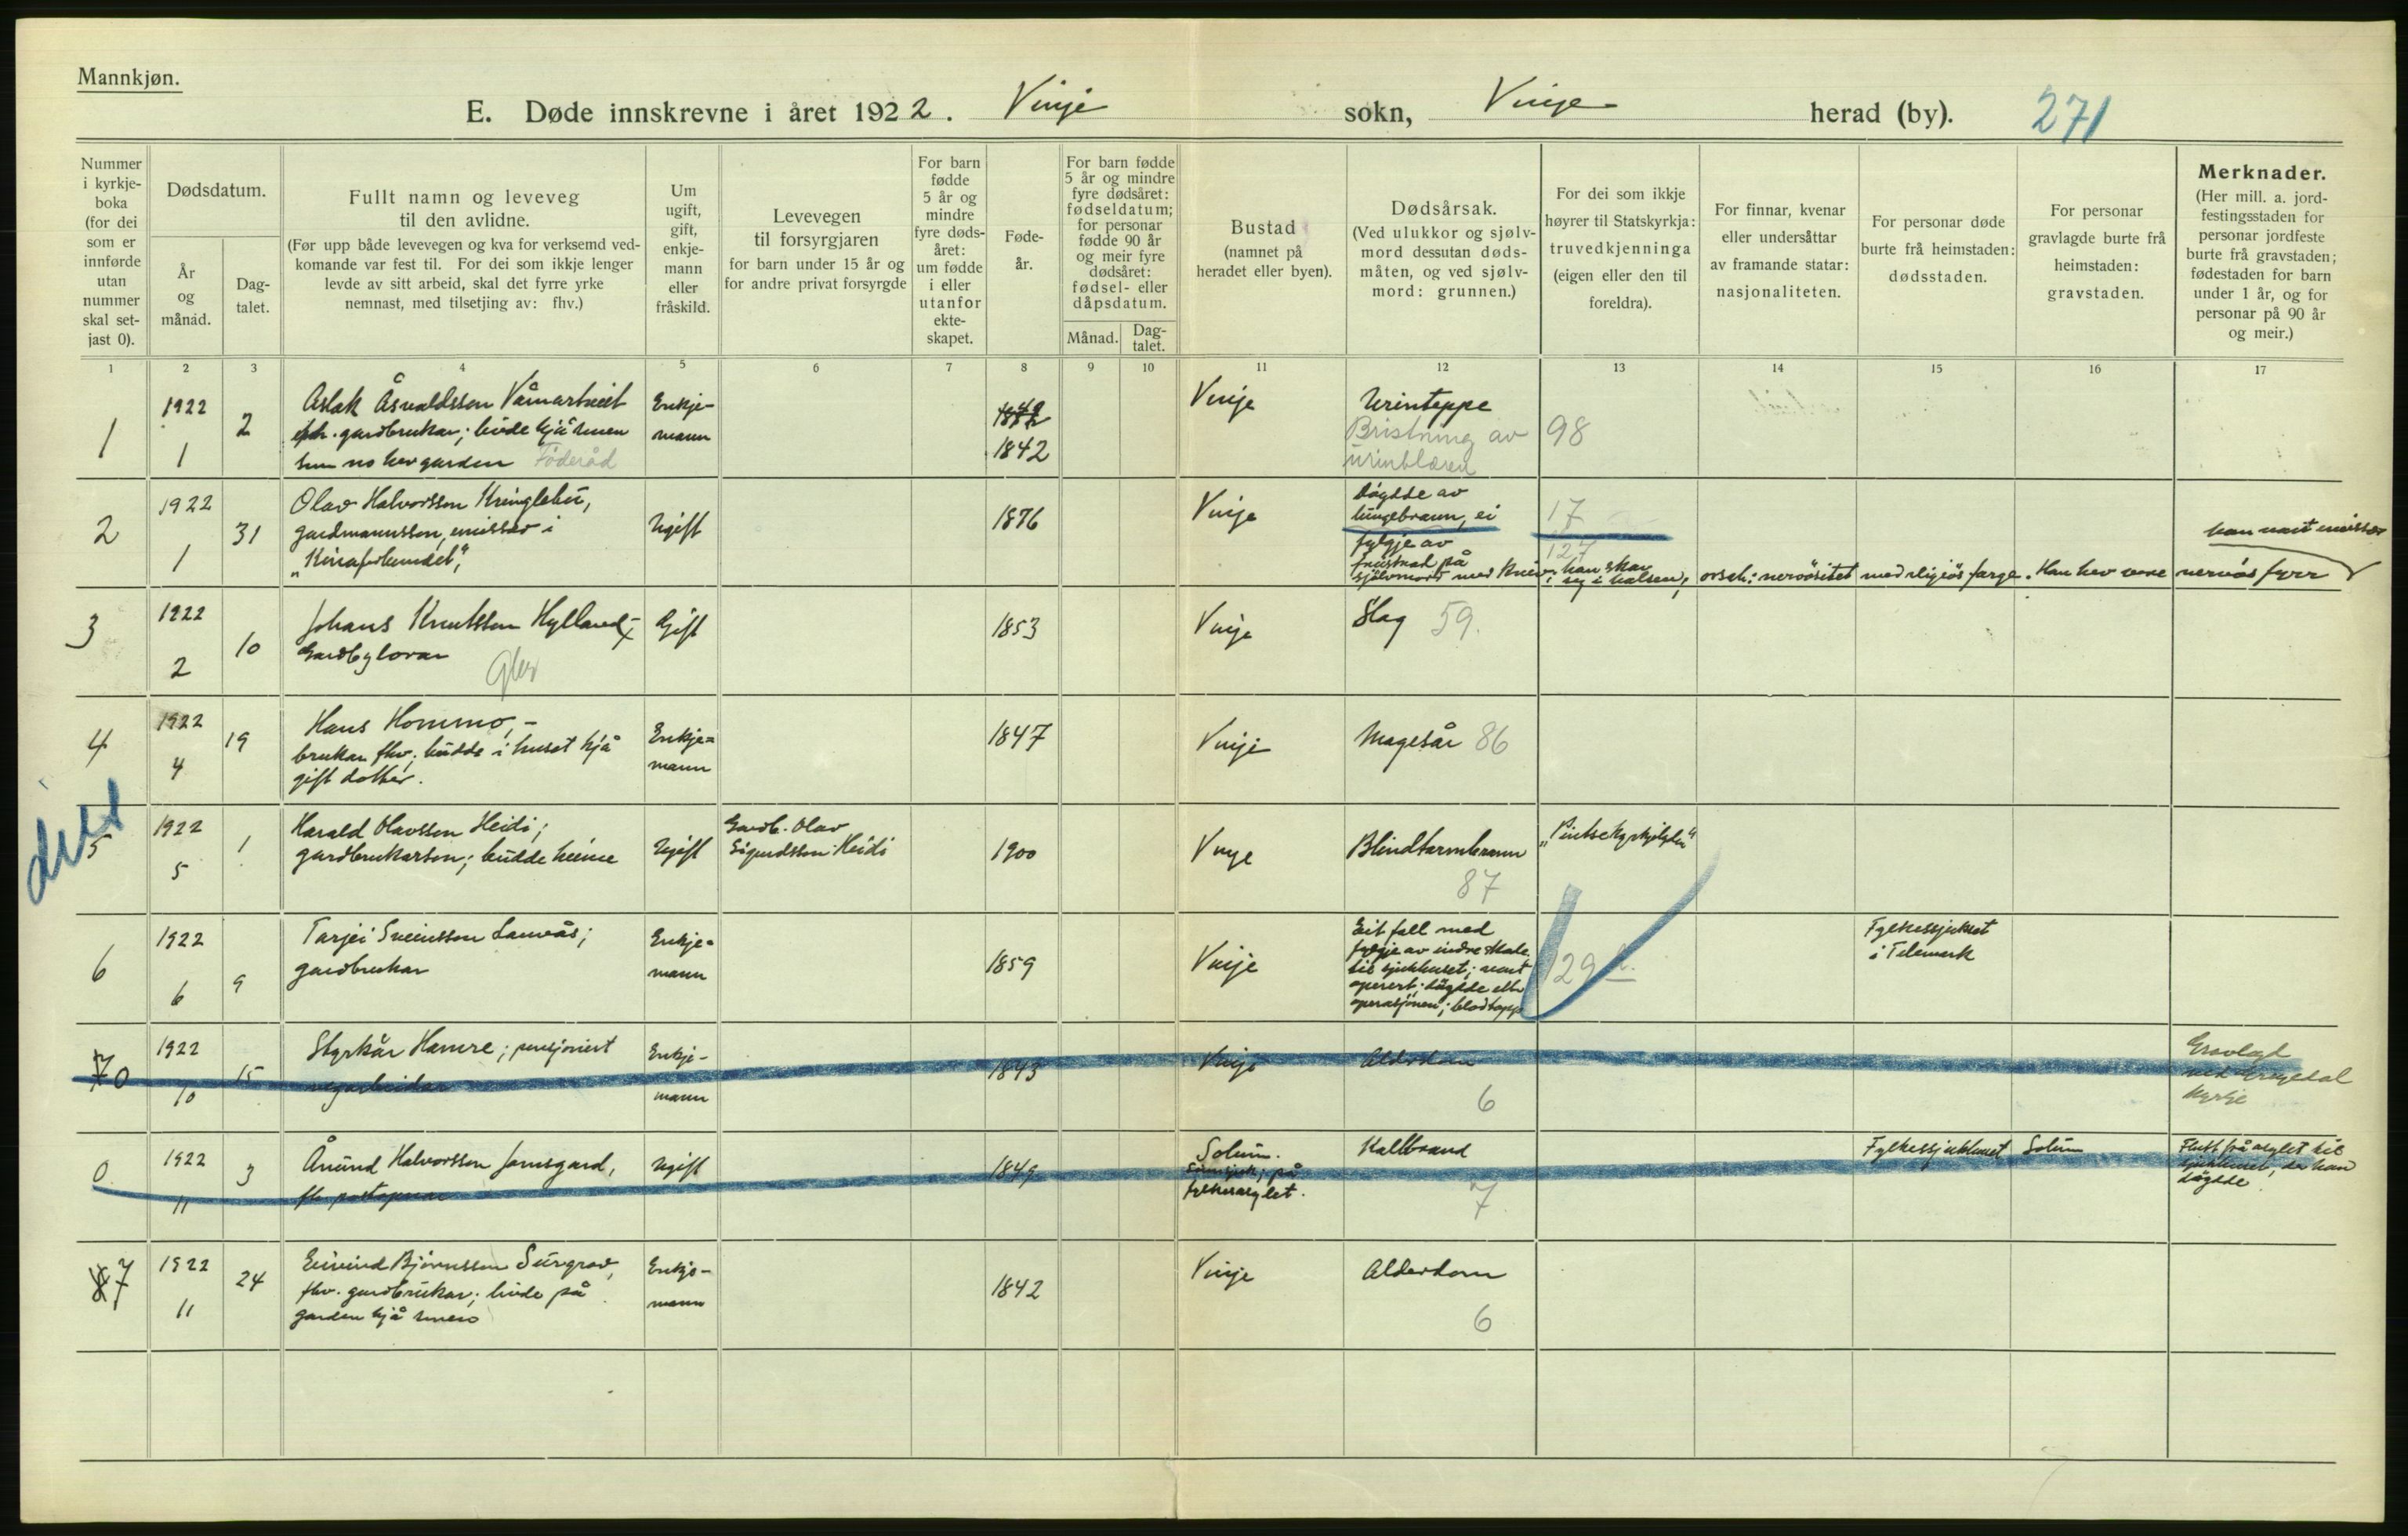 Mannkjøn.
E. Døde innskrevne i året 1922. Vinje sokn, Vinje herad (by). 271
Nummer
i kyrkje-
boka
(for dei
som er
innførde
utan
nummer
skal set-
jast 0).
Dødsdatum.
År
og
månad.
Dag-
talet.
Fullt namn og leveveg
til den avlidne.
(Før upp både levevegen og kva for verksemd ved-
komande var fest til. For dei som ikkje lenger
levde av sitt arbeid, skal det fyrre yrke
nemnast, med tilsetjing av: fhv.)
Um
ugift,
gift,
enkje-
mann
eller
fråskild.
Levevegen
til forsyrgjaren
for barn under 15 år og
for andre privat forsyrgde
For barn
fødde
5 år og
mindre
fyre døds-
året:
um fødde
i eller
utanfor
ekte-
skapet.
Føde-
år.
For barn fødde
5 år og mindre
fyre dødsåret:
fødseldatum;
for personar
fødde 90 år
og meir fyre
dødsåret:
fødsel- eller
dåpsdatum.
Månad.
Dag-
talet.
Bustad
(namnet på
heradet eller byen).
Dødsårsak.
(Ved ulukkor og sjølv-
mord dessutan døds-
måten, og ved sjølv-
mord: grunnen.)
For dei som ikkje
høyrer til Statskyrkja:
truvedkjenninga
(eigen eller den til
foreldra).
For finnar, kvenar
eller undersåttar
av framande statar:
nasjonaliteten.
For personar døde
burte frå heimstaden:
dødsstaden.
For personar
gravlagde burte frå
heimstaden:
gravstaden.
Merknader.
(Her mill. a. jord-
festingsstaden for
personar jordfeste
burte frå gravstaden;
fødestaden for barn
under 1 år, og for
personar på 90 år
og meir.)
1 2 3 4 5 6 7 8 9 10 11 12 13 14 15 16 17
1
1922
1
2
Aslak Åsvaldsson Våmartveit
gardbrukar; livde hjå sonen
som no hev garden Föderåd
Enkje-
mann
1842
Vinje
Urinteppe
Bristning av
urinblæren
98
2
1922
1
31
Olav Halvorsson Kringlebu,
gardmannsson, emissær i
"Kinaforbundet",
Ugift
1876
Vinje
Döydde av
lungebrann, ei
fylgje av
freistnad på
sjölvmord med kniv; han skar
seg i halsen; orsak: nervösitet med religiös farge. Han hev vore nervös fyrr
17
127
han vart emissær
3
1922
2
10
Johans Knutsson Hylland,
Gardbylovar
Gbr
Gift
1853
Vinje
Slag 59.
4
1922
4
19
Hans Hommo,-
brukar fhv; budde i huset hjå
gift dotter.
Enkje=
mann
1847
Vinje
Magesår 86
5
1922
5
1
Harald Olavsson Heidi;
gardbrukarson; budde heime
Ugift
Gardb. Olav
Sigurdsson Heidi
1900
Vinje
Blindtarmbrann
87
6
1922
6
9
Tarjei Sveinsson Lauvås;
gardbrukar
Enkje=
mann
1859
Vinje
Eit fall med
fylgje av indre skade.
til sjukhuset; vart
operert; döydde etter
operasjonen; blodtapp
129
Fylkessjukhuset
i Telemark
7 0
1922
10
15
Styrkår Hamre; pensjonert
vegarbeidar
Enkje-
mann
1843
Vinje
Alderdom
6
Gravlagt
ved Grungedal
kyrkje
0
1922
11
3
Ånund Halvorsson Jamsgard,
fhv. postopnar
Ugift
1849
Solum.
Sinnsjuk; på
fylkesasylet.
Kaldbrand
7
Fylkessjukhuset
Solum
Flutt frå asylet til
sjukhuset, der han
döydde.
8 7
1922
11
24
Eivind Björnsson Surgrav,
fhv. gardbrukar; livde på
garden hjå sonen
Enkje-
mann
1842
Vinje
Alderdom
6